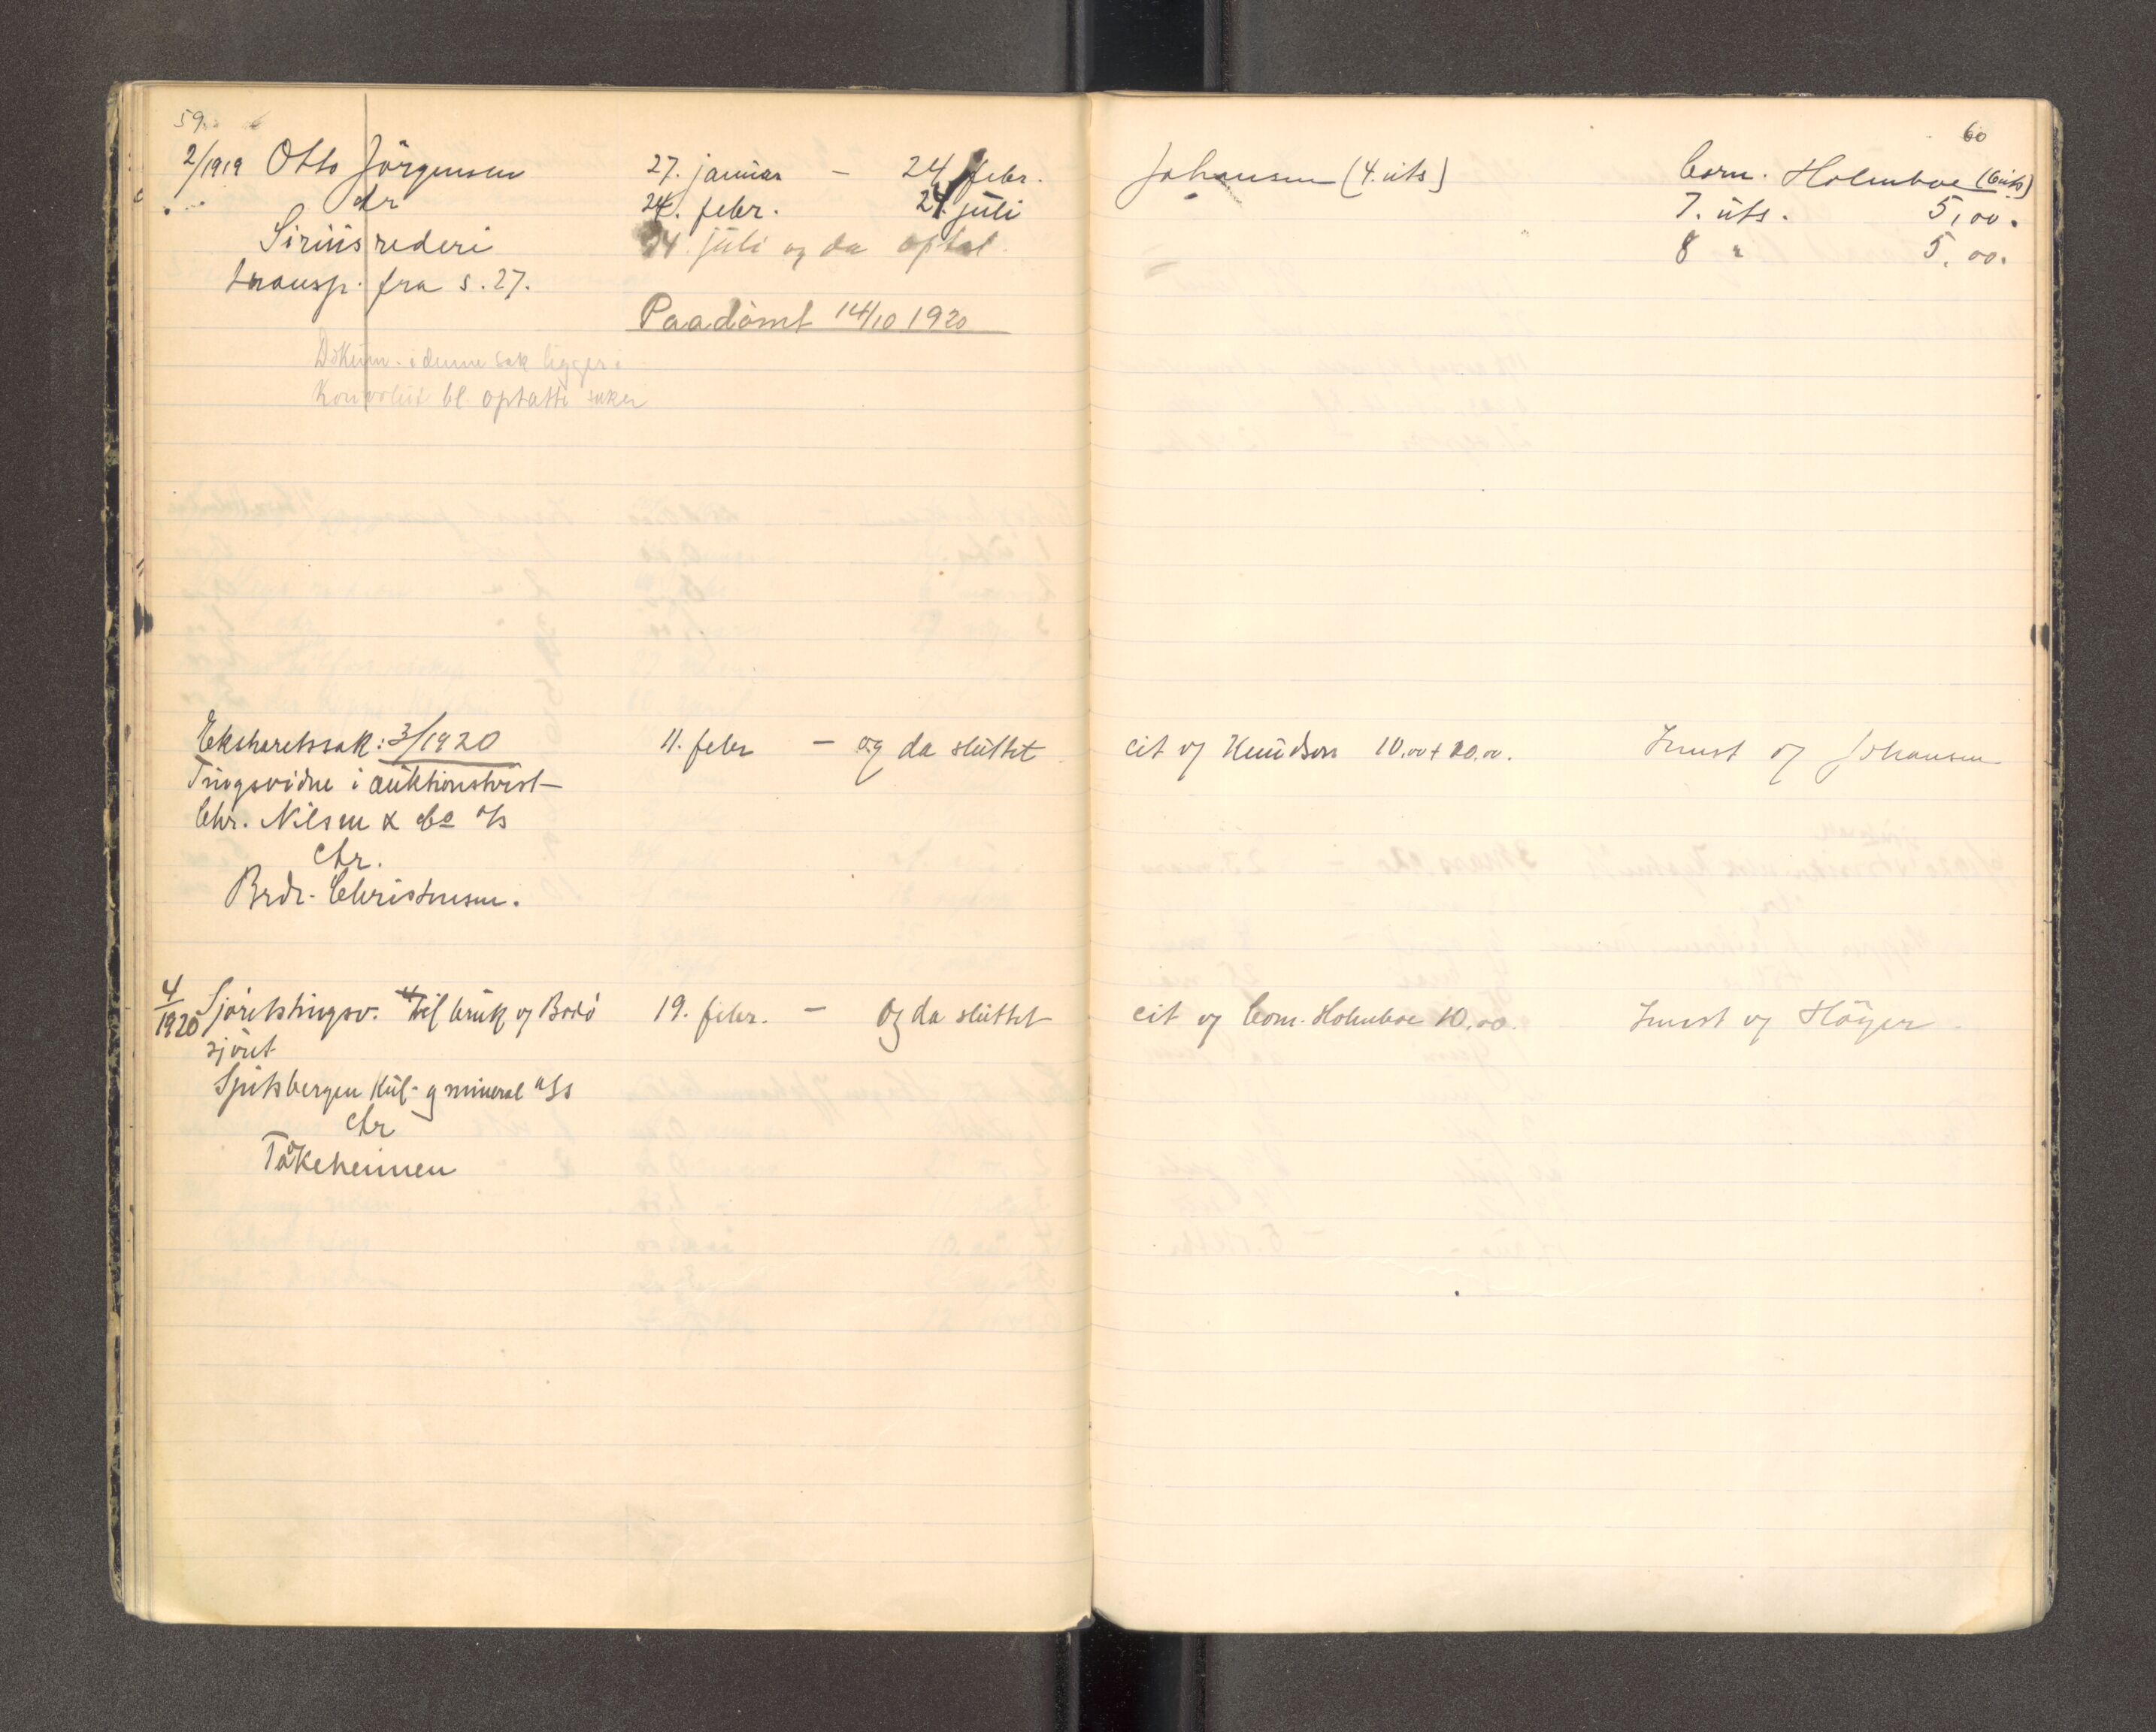 59.
2/1919 Otto Jörgensen 27. januar – 24 febr.
ctr 24. febr. 24. juli
Siriusrederi 24. juli og da optat.
transp. fra s. 27.
Paadömt 14/10 1920
Dokum. i denne sak ligger i
Konvolut bl. optatte saker
Ekstraretssak: 3/1920 11. febr – og da sluttet
Tingsvidne i auktionstvist
Chr. Nilsen & Co a/s
ctr.
Brdr. Christensen.
4/1920 Sjöretstingsv. til bruk og Bodö 19. febr. – og da sluttet
sjöret
Spitsbergen Kul- og mineral a/s
ctr
Tåkeheimen
60
Johansen (4. uts) Corn. Holmboe (6 uts)
7. uts. 5,00.
8 " 5,00.
cit og Knudson 10.00 + 20.00. Smst og Johansen
cit og Corn. Holmboe 10.00. Smst og Höyer